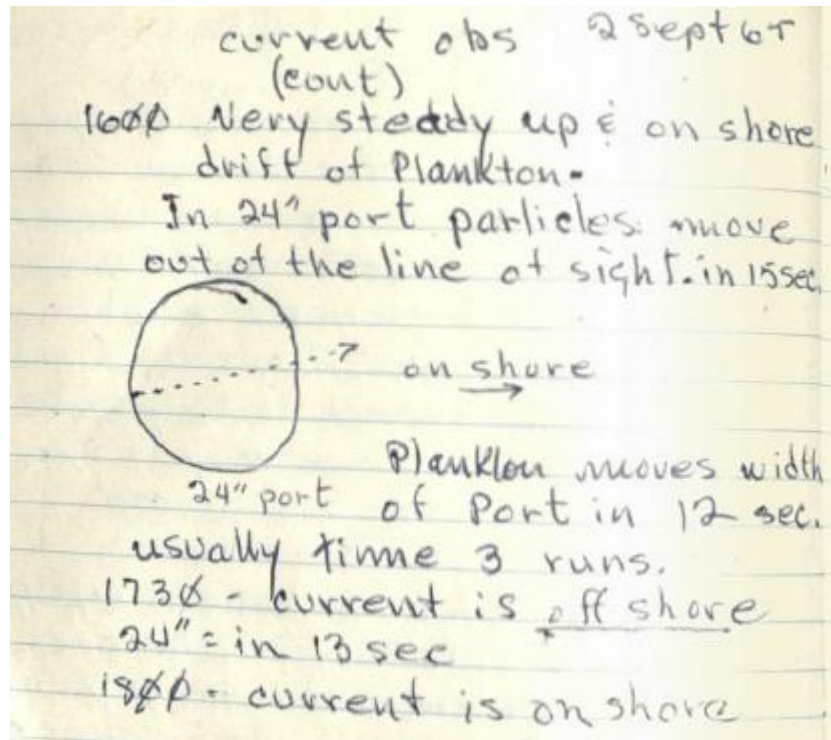 current obs 2 Sept 65
(cont)
1600 Very steady up & on shore
drift of Plankton-
In 24" port particles move
out of the line of sight. in 15 sec.
on shore
Plankton moves width
24" port of Port in 12 sec.
usually time 3 runs.
1730 - current is off shore
24" = in 13 sec
1800 - current is on shore